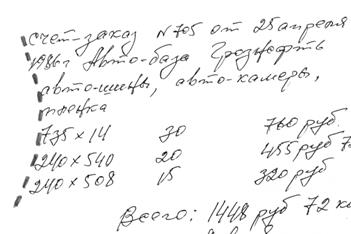 счет-заказ №705 от 25 апреля
1986г Авто-база Грознефть
авто-шины, авто-камеры,
735×14 30 760 руб.
240×540 20 455 руб 7
240×508 15 320 руб
Всего: 1448 руб 72 к